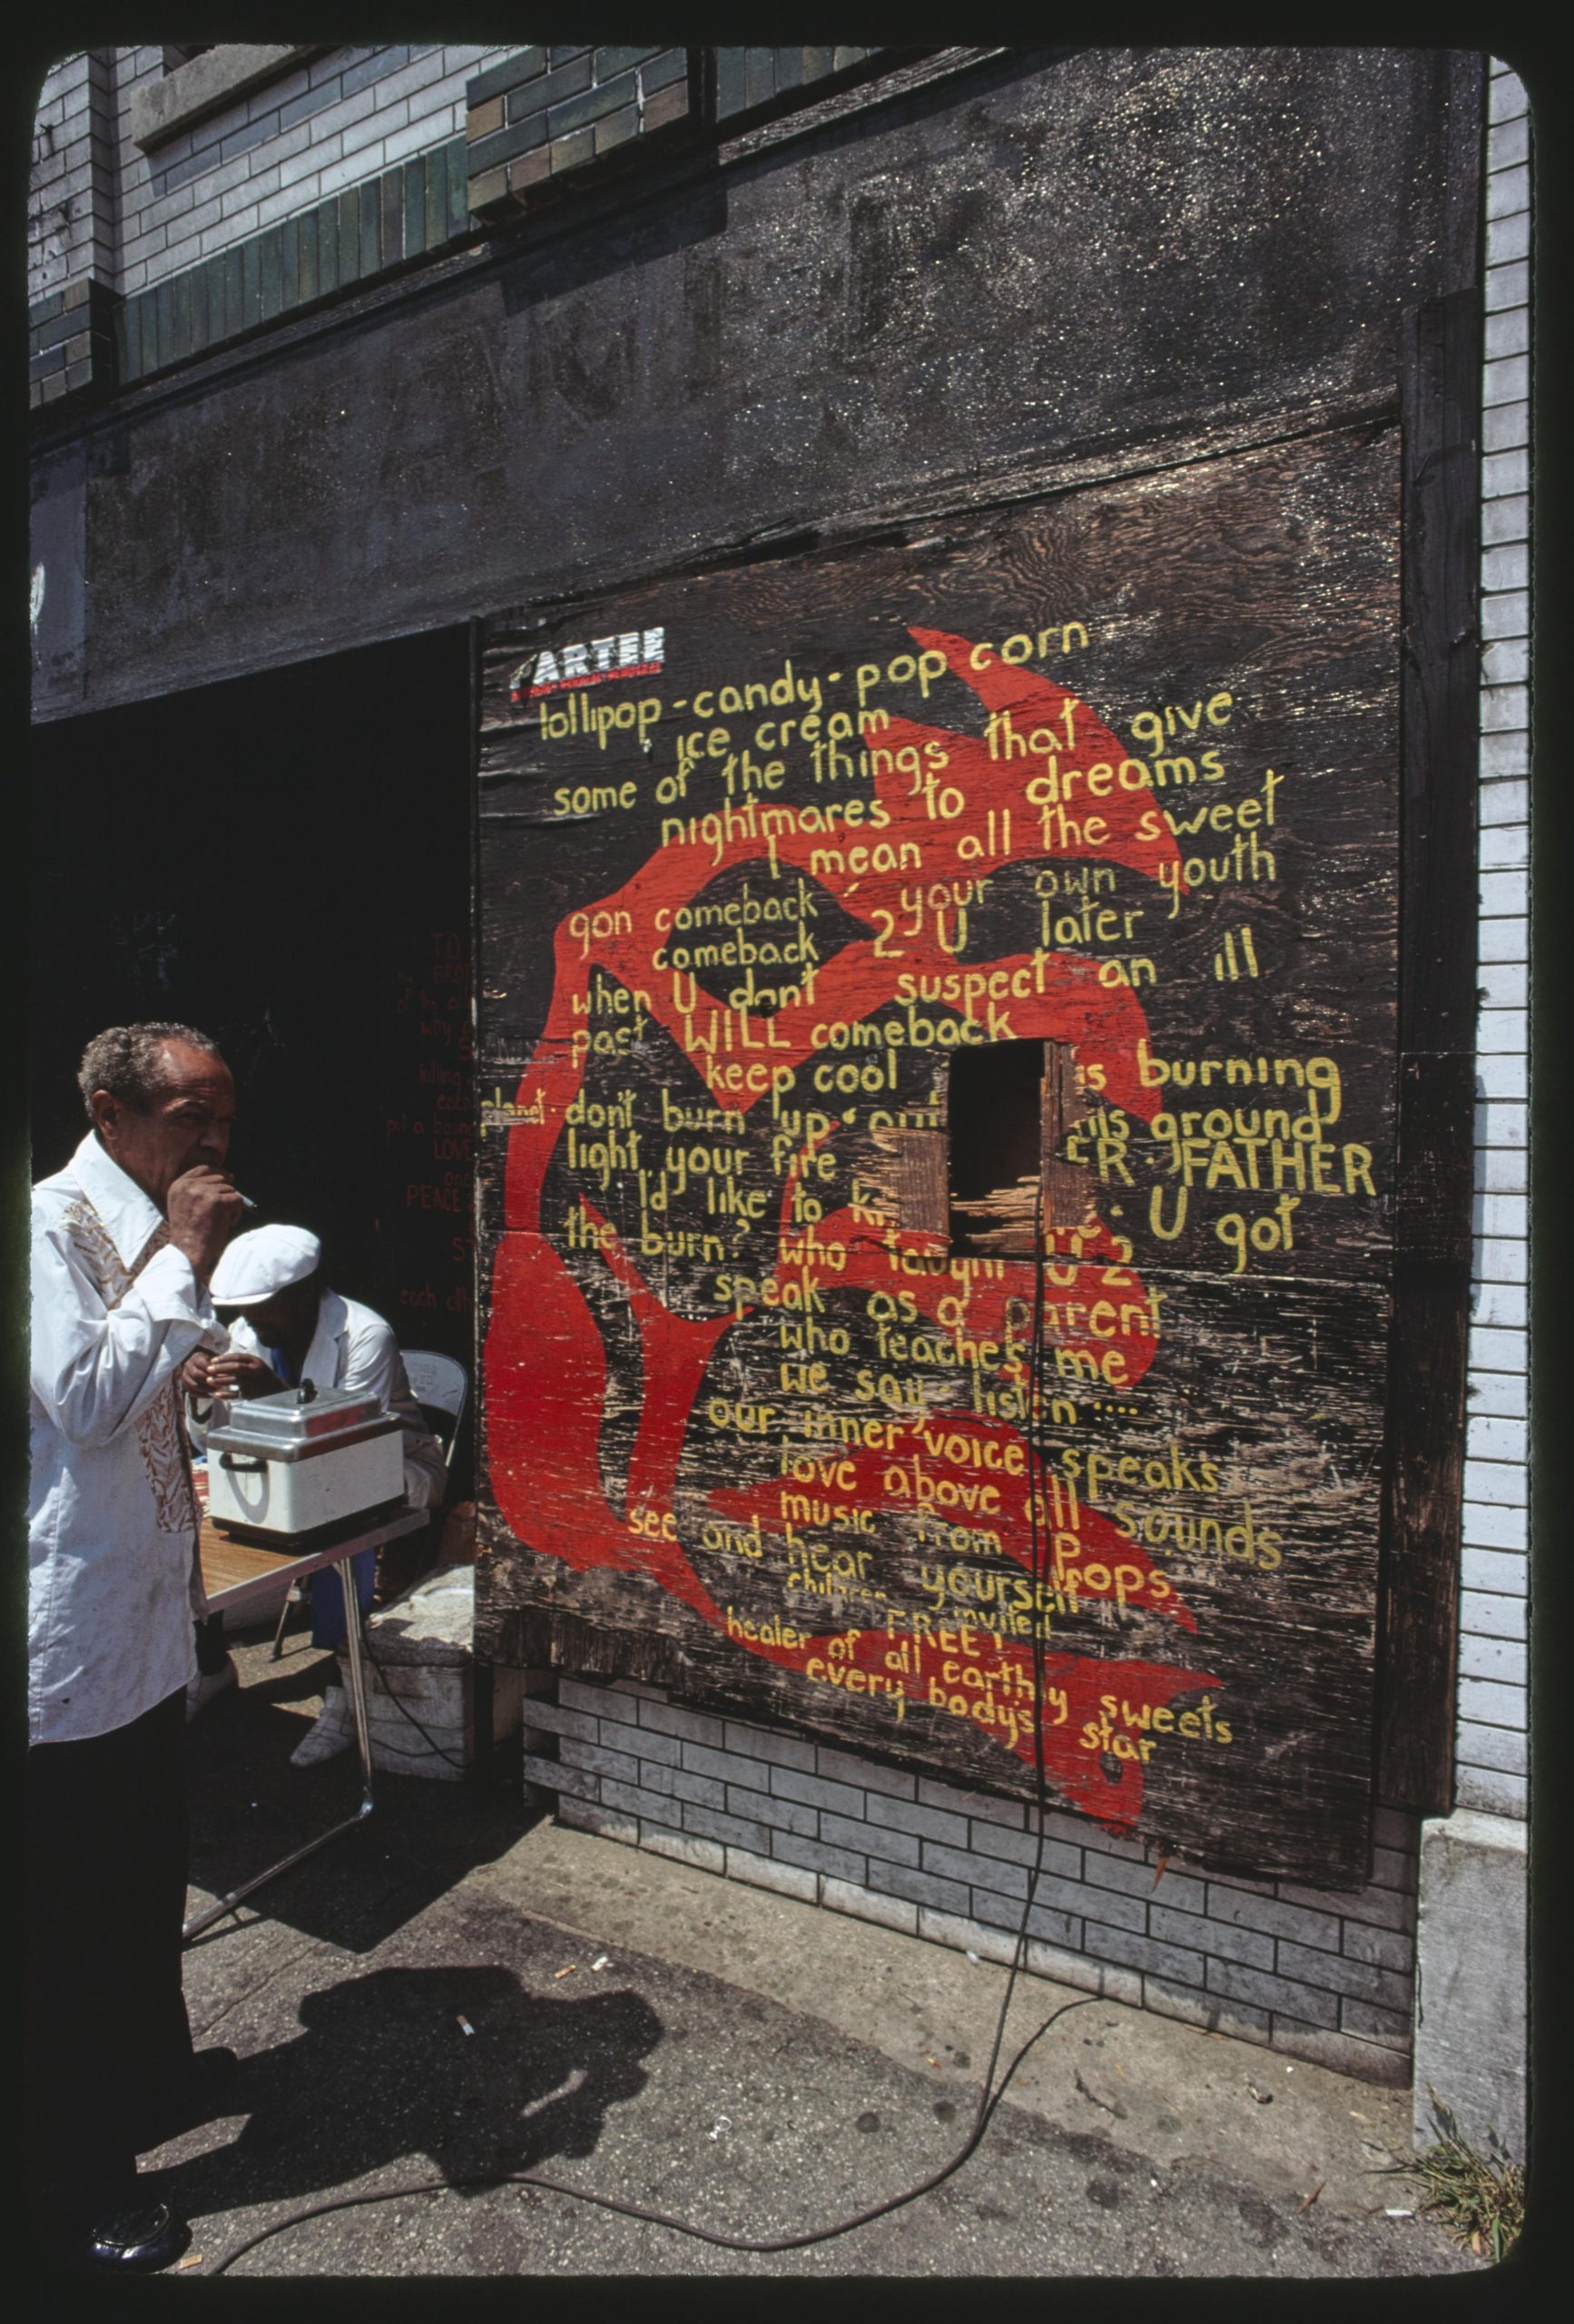 lollipop-candy-pop corn
ice cream
some of the things that give
nightmares to dreams
I mean all the sweet
gon comeback your own youth
comeback 2 U later
when U dont suspect an ill
past WILL comeback
keep cool is burning
planet. don't burn up ground
light your fire FATHER
I'd like to U got
the burn? who taught U 2
speak as a parent
who teaches me
we say listen....
our inner voice speaks
love above all sounds
music from Pops
see and hear yourself
children invited
FREE!
healer of all earthly sweets
every body's star
TO
killing
each
put a
LOVE
PEACE
each oth